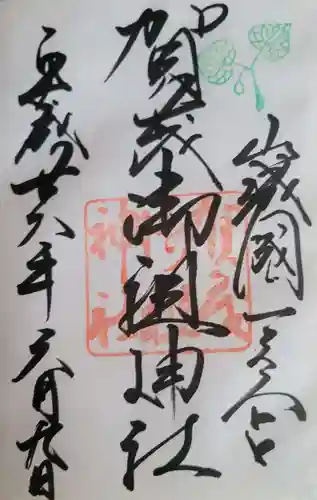 山城國一之宮
賀茂御祖神社
平成廿六年六月九日